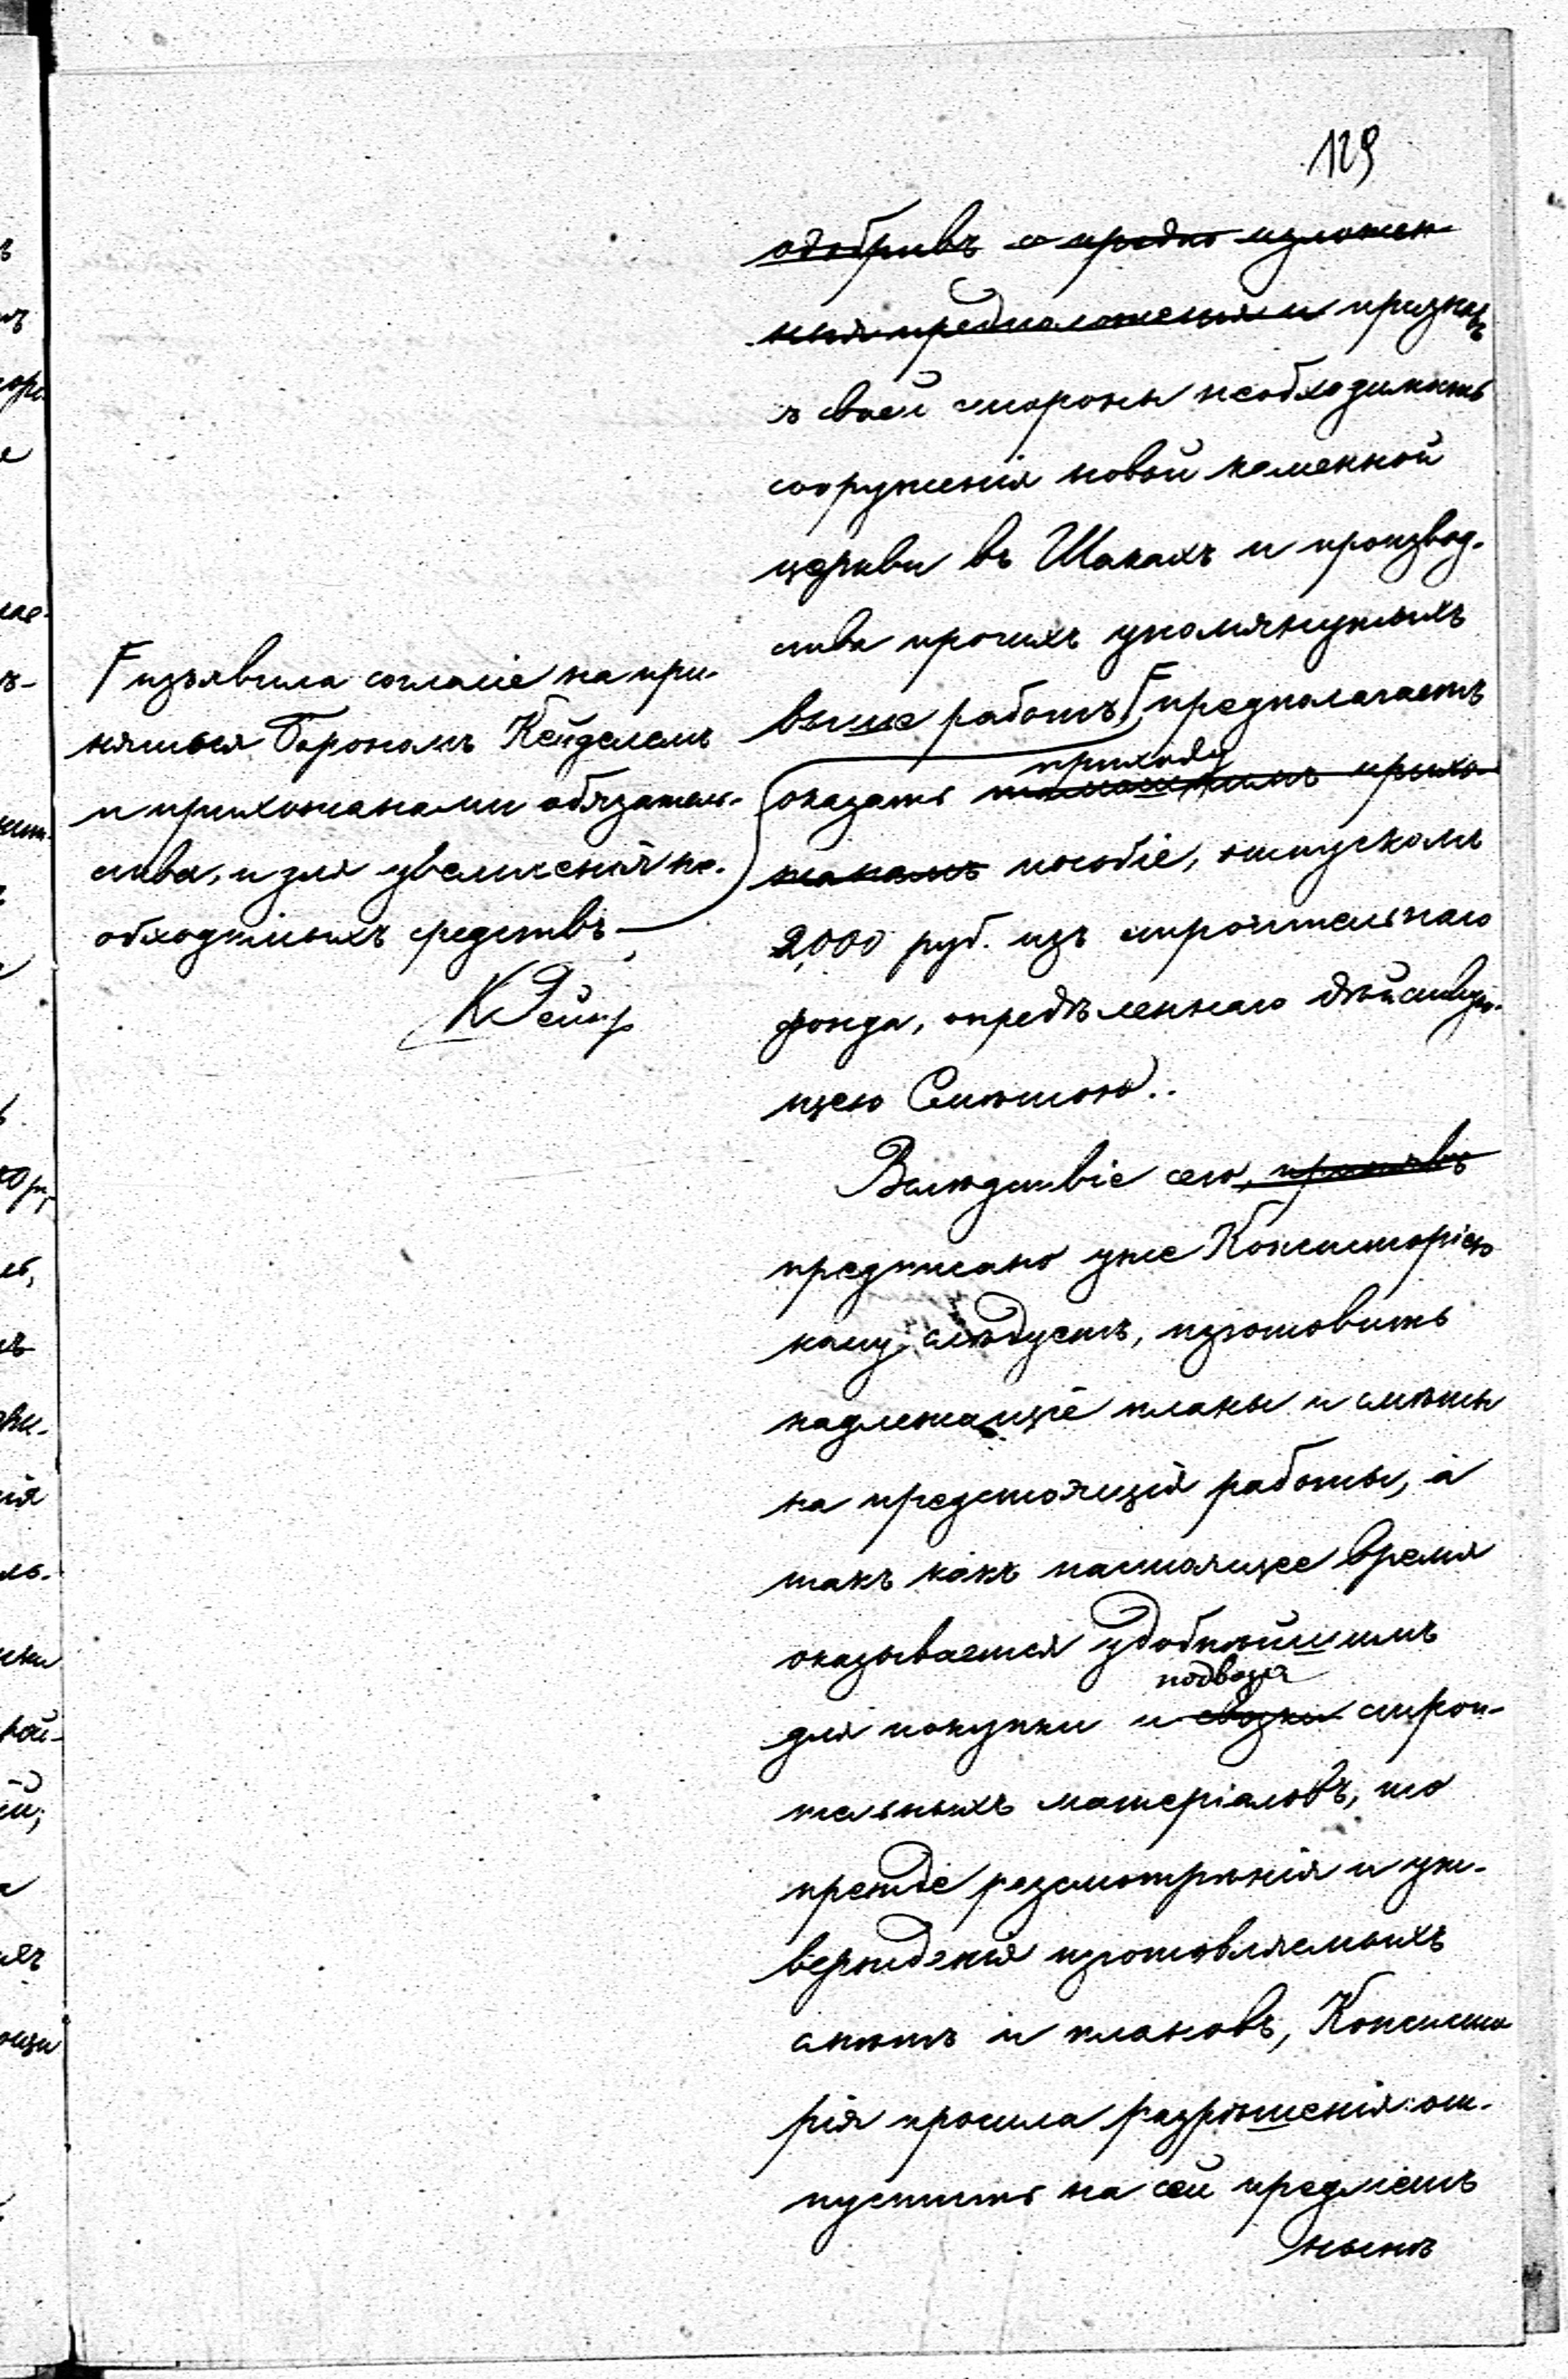 129
одобривъ и предъ изложен-
ныя предположенія и признавъ
съ своей стороны необходимость
сооруженія новой каменной
церкви въ Шакахъ и производ-
ства прочихъ упомянутыхъ
выше работъ, предполагаетъ
приходу
оказать прихо-
жанамъ пособіе, отпускомъ
2,000 руб. изъ строительнаго
фонда, опредѣленнаго дѣйствую-
щею Смѣтою.
Вслѣдствіе сего, принявъ
предписано уже Консисторіею
кому слѣдуетъ, изготовить
надлежащіе планы и смѣты
на предстоящія работы, а
такъ какъ настоящее время
оказывается удобнѣйшимъ
подвоза
для покупки и свозки строи-
тельныхъ матеріаловъ, то
прежде разсмотрѣнія и ут-
вержденія изготовляемыхъ
смѣтъ и плановъ, Консисто
рія просила разрѣшенія от-
пустить на сей предметъ
нынѣ
изъявила согласіе на при-
нятыя Барономъ Кейделемъ
и прихожанами обязатель-
ства, и для увеличенія не-
обходимыхъ средствъ —